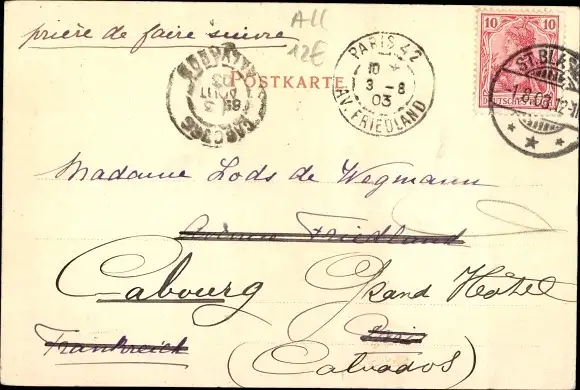 prière de faire suivre
All
12€
POSTKARTE
PARIS 42
10 *
3 - 8
03
AV. FRIEDLAND
10 10
DEUTSCHES REICH
ST. BLAS
1.8.03.12-1
CABOURG
3
AOUT
03
CALVADOS
Madame Lods de Wegmann
Avenue Friedland
Cabourg Grand Hôtel
Paris
Frankreich
(Calvados)